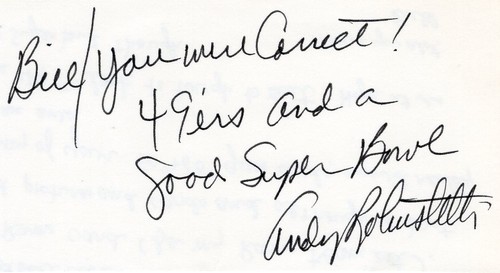 Bill/you were Correct!
49'ers and a
good Super Bowl
Andy Robustelli